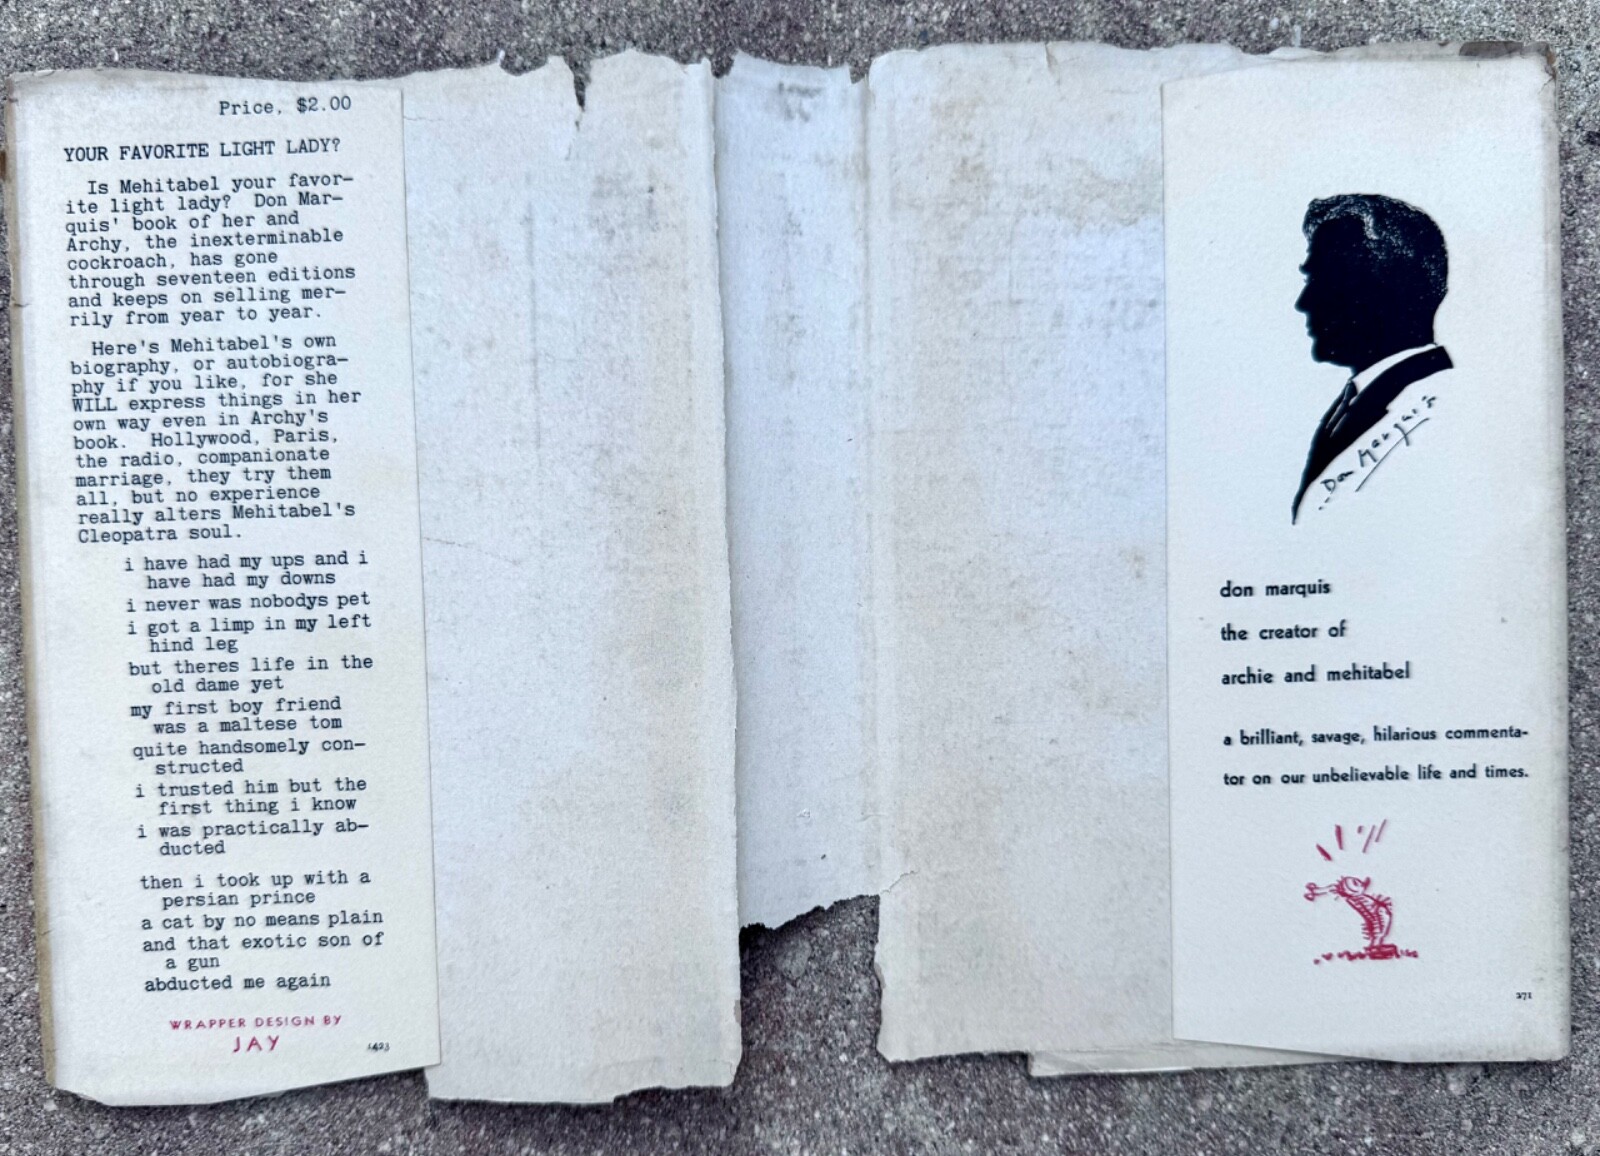 Price, $2.00
YOUR FAVORITE LIGHT LADY?
Is Mehitabel your favor-
ite light lady? Don Mar-
quis' book of her and
Archy, the inexterminable
cockroach, has gone
through seventeen editions
and keeps on selling mer-
rily from year to year.
Here's Mehitabel's own
biography, or autobiogra-
phy if you like, for she
WILL express things in her
own way even in Archy's
book. Hollywood, Paris,
the radio, companionate
marriage, they try them
all, but no experience
really alters Mehitabel's
Cleopatra soul.
i have had my ups and i
have had my downs
i never was nobodys pet
i got a limp in my left
hind leg
but theres life in the
old dame yet
my first boy friend
was a maltese tom
quite handsomely con-
structed
i trusted him but the
first thing i know
i was practically ab-
ducted
then i took up with a
persian prince
a cat by no means plain
and that exotic son of
a gun
abducted me again
WRAPPER DESIGN BY
JAY
1423
Don Marquis
don marquis
the creator of
archie and mehitabel
a brilliant, savage, hilarious commenta-
tor on our unbelievable life and times.
271